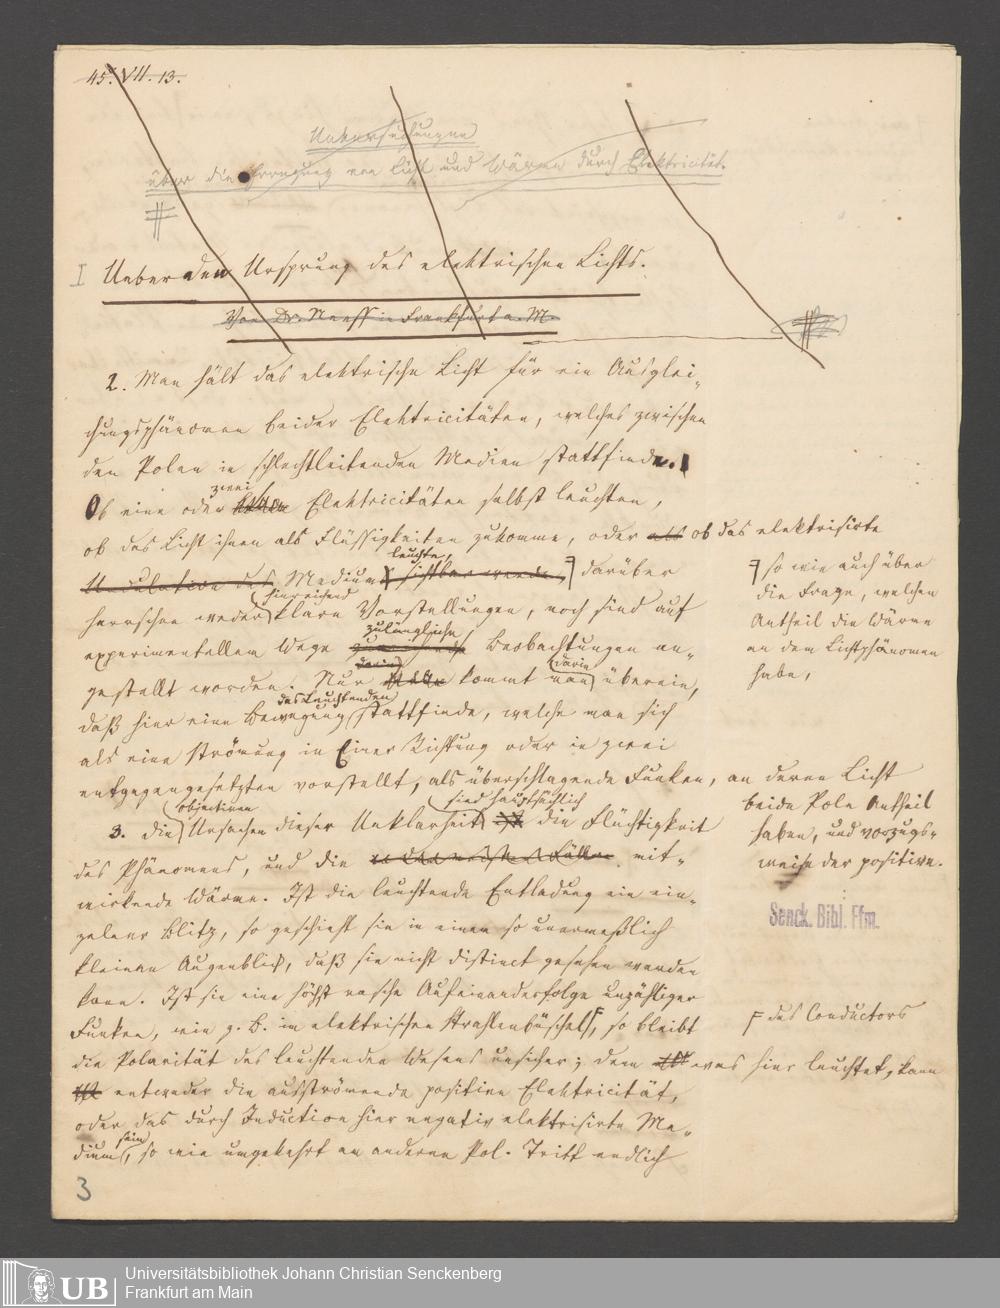 45. VII. 13.
Untersuchungen
über die Erregung von Licht und Wärme durch Elektricität.
#
I Ueber den Ursprung des elektrischen Lichts.
Von Dr. Neeff in Frankfurt a. M.
#
2. Man hält das elektrische Licht für ein Ausglei-
chungsphänomen beider Elektricitäten, welches zwischen
den Polen in schlechtleitenden Medien stattfinde.
zwei
Ob eine oder beide Elektricitäten selbst leuchten,
ob das Licht ihnen als Flüssigkeiten zukomme, oder als ob das elektrisirte
leuchte,
Undulation des Medium sichtbar werde, F darüber
hinreichend
herrschen weder klare Vorstellungen, noch sind auf
zulängliche
experimentellem Wege Beobachtungen an-
darin
gestellt worden. Nur kommt man überein,
des Leuchtenden
daß hier eine Bewegung stattfinde, welche man sich
als eine Strömung in Einer Richtung oder in zwei
entgegengesetzten vorstellt, als überschlagende Funken, an deren Licht
F so wie auch über
die Frage, welchen
Antheil die Wärme
an dem Lichtphänomen
habe,
beide Pole Antheil
haben, und vorzugs-
weise der positive.
objectiven
sind hauptsächlich
3. die Ursachen dieser Unklarheit ist die Flüchtigkeit
des Phänomens, und die in den meisten Fällen mit-
wirkende Wärme. Ist die leuchtende Entladung ein ein-
zelner Blitz, so geschieht sie in einem so unermeßlich
kleinen Augenblick, daß sie nicht distinct gesehen werden
kann. Ist sie eine höchst rasche Aufeinanderfolge unzähliger
Funken, wie z. B. im elektrischen Strahlenbüschel F, so bleibt
F des Conductors
die Polarität des leuchtenden Wesens unsicher; denn was hier leuchtet, kann
ist entweder die ausströmende positive Elektricität,
oder das durch Induction hier negativ elektrisirte Me-
sein
dium, so wie umgekehrt am anderen Pol. Tritt endlich
Senck. Bibl. Ffm.
3
UB
Universitätsbibliothek Johann Christian Senckenberg
Frankfurt am Main